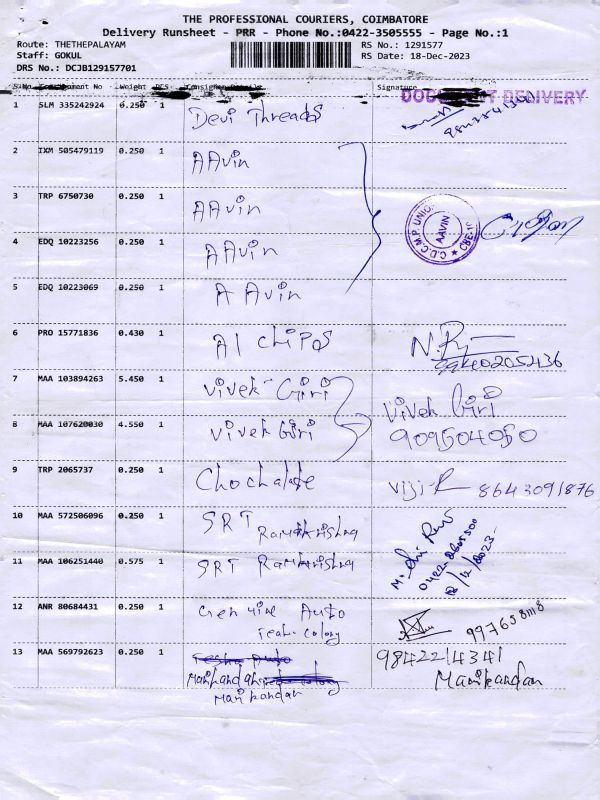 THE PROFESSIONAL COURIERS, COIMBATORE
Delivery Runsheet - PRR - Phone No.:0422-3505555 - Page No.:1
Route: THETHEPALAYAM
RS No.: 1291577
Staff: GOKUL
RS Date: 18-Dec-2023
DRS No.: DCJB129157701
Weight
Signature
DELIVERY
1 SLM 335242924 0.250 1 Devi Threads
2 IXM 505479119 0.250 1 AAvin
3 TRP 6750730 0.250 1 AAvin
C.D.C.M.P. UNION AAVIN
4 EDQ 10223256 0.250 1 AAvin
5 EDQ 10223069 0.250 1 A Avin
6 PRO 15771836 0.430 1 A1 chips
7 MAA 103894263 5.450 1 Vivek Giri
8 MAA 107620030 4.550 1 Vivek Giri
Vivek Giri
909504050
9 TRP 2065737 0.250 1 Chochalate Viji-R 8643091876
10 MAA 572506096 0.250 1 SRT Ramakrishna
11 MAA 106251440 0.575 1 SRT Ramkrishna
12 ANR 80684431 0.250 1 Genuine Auto
colony
13 MAA 569792623 0.250 1
9842214341
Manikandan
Manikandan